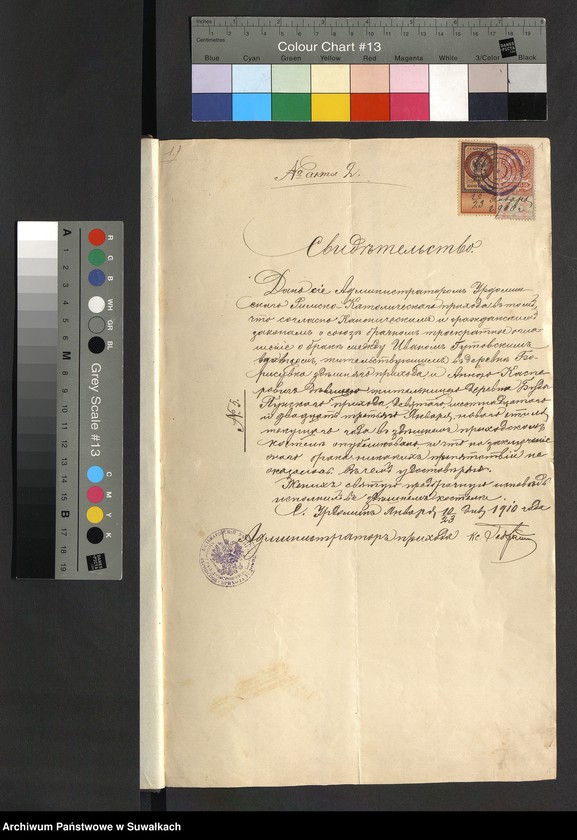 Colour Chart #13
Blue Cyan Green Yellow Red Magenta White 3/Color Black
Grey Scale #13
№ акта 2.
Свидѣтельство.
Дано сіе Администраторомъ Урдомин-
скаго Римско-Католическаго прихода въ томъ,
что согласно Каноническимъ и гражданскимъ
законамъ о союзѣ брачномъ троекратное огла-
шеніе о бракѣ между Иваномъ Гутовскимъ
вдовцомъ, жительствующимъ въ деревнѣ Бо-
рисувка здѣшняго прихода и Анною Каспе-
ровичъ жительницею деревни Буда
Пунскаго прихода девятаго, шестнадцатаго
и двадцать третьяго Января новаго стиля
текущаго года въ здѣшнемъ приходскомъ
костелѣ опубликовано и что по заключенію
онаго брака никакихъ препятствій не
оказалось. Въ чемъ удостовѣряю.
Женихъ святую предбрачную исповѣдь
исполнилъ въ здѣшнемъ костелѣ.
С. Урдоминъ Января 10/23 дня 1910 года
Администраторъ прихода Кс.
Archiwum Państwowe w Suwałkach